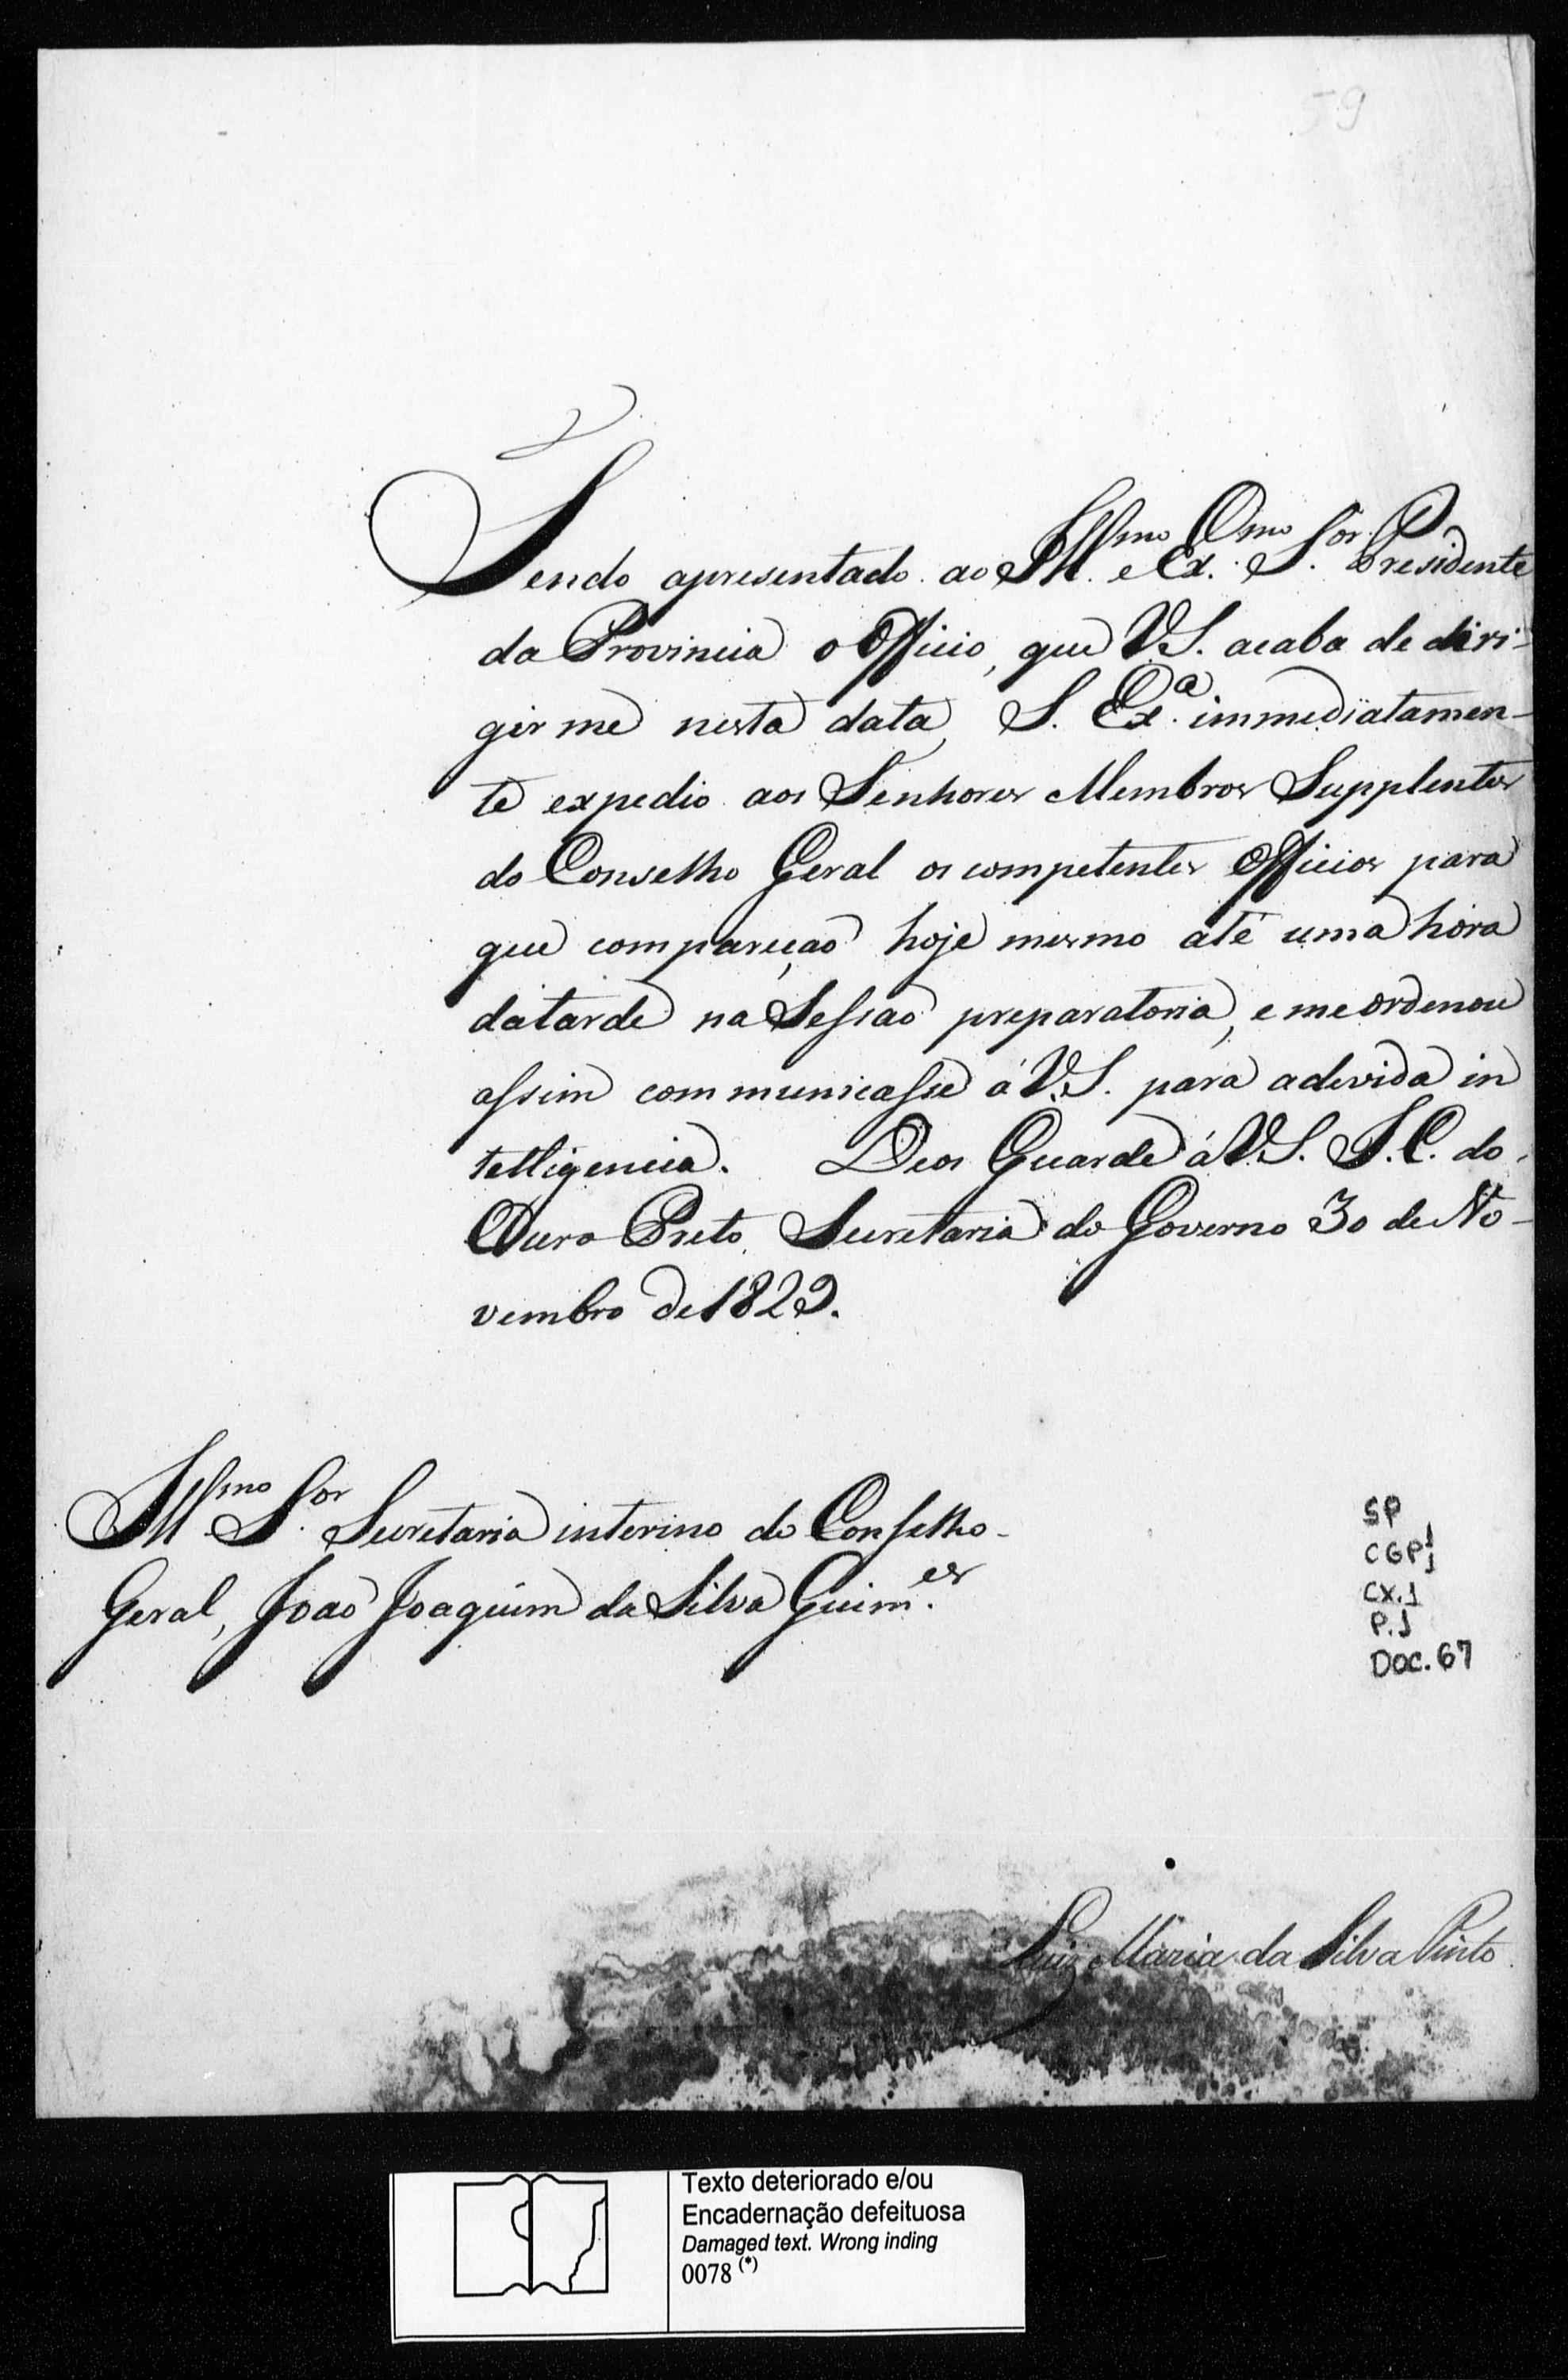 59
Sendo apresentado ao Ill.mo e Ex.mo S.or Presidente
da Provincia o Officio, que V.S. acaba de diri-
gir me nesta data, S. Ex.a immediatamen-
te expedio aos Senhores Membros Supplentes
do Conselho Geral os competentes Officios para
que compareção hoje mesmo até uma hora
da tarde na Sessão preparatoria, e me ordenou
assim communicasse á V.S. para a devida in
telligencia. Deos Guarde á V.S. I.C. do
Ouro Preto, Secretaria do Governo 30 de No-
vembro de 1829.
Ill.mo S.or Secretario interino do Conselho
Geral, João Joaquim da Silva Guim.es
SP
CGP1
CX.1
P.1
Doc.67
Luiz Maria da Silva Pinto
Texto deteriorado e/ou
Encadernação defeituosa
Damaged text. Wrong inding
0078 (*)